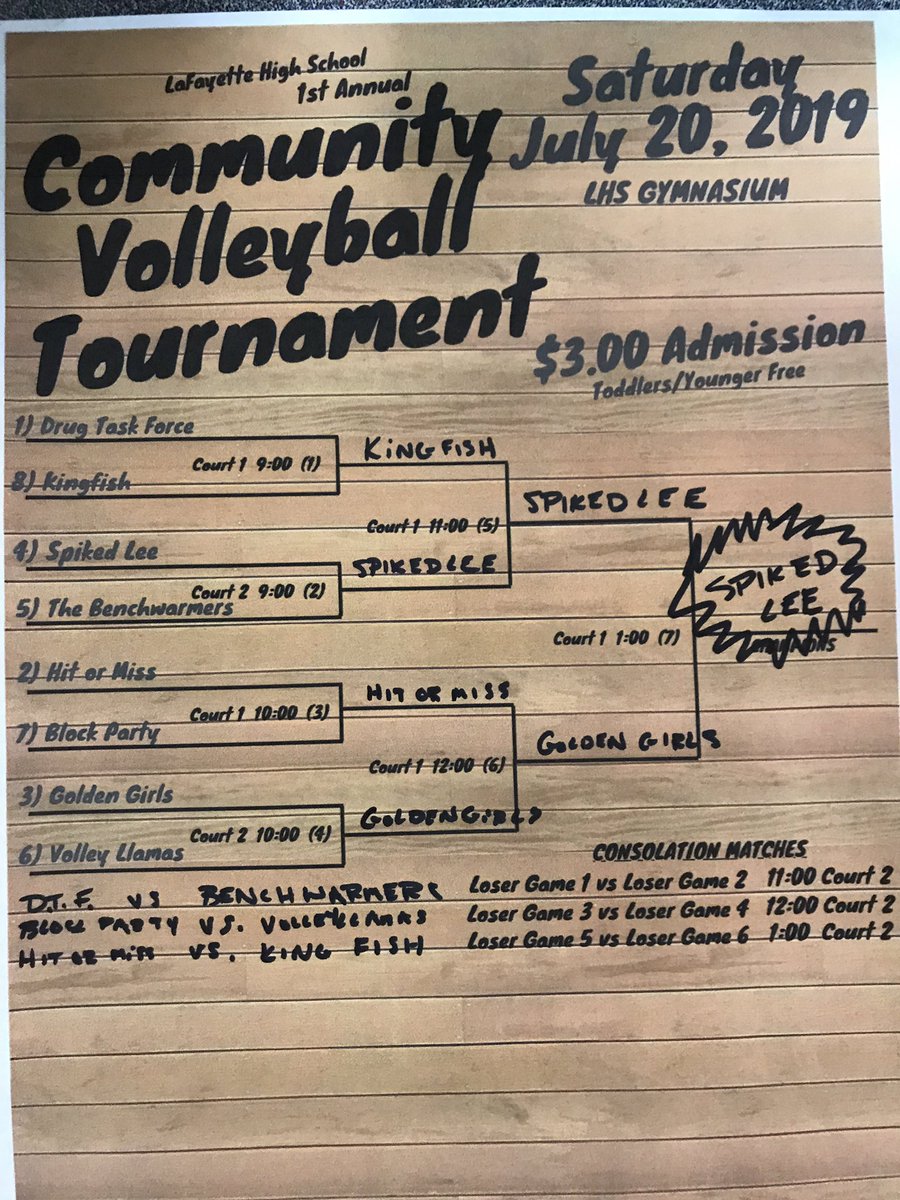 LaFayette High School
1st Annual
Community
Volleyball
Tournament
Saturday
July 20, 2019
LHS GYMNASIUM
$3.00 Admission
Toddlers/Younger Free
1) Drug Task Force
Court 1 9:00 (1)
8) Kingfish
KINGFISH
Court 1 11:00 (5)
4) Spiked Lee
Court 2 9:00 (2)
5) The Benchwarmers
SPIKED LEE
SPIKED LEE
Court 1 1:00 (7)
SPIKED
LEE
2) Hit or Miss
Court 1 10:00 (3)
7) Block Party
HIT OR MISS
Court 1 12:00 (6)
3) Golden Girls
Court 2 10:00 (4)
6) Volley Llamas
GOLDEN GIRLS
GOLDEN GIRLS
CONSOLATION MATCHES
Loser Game 1 vs Loser Game 2 11:00 Court 2
Loser Game 3 vs Loser Game 4 12:00 Court 2
Loser Game 5 vs Loser Game 6 1:00 Court 2
D.T.F. VS BENCHWARMERS
BLOCK PARTY VS. VOLLEYLLAMAS
HIT OR MISS VS. KING FISH